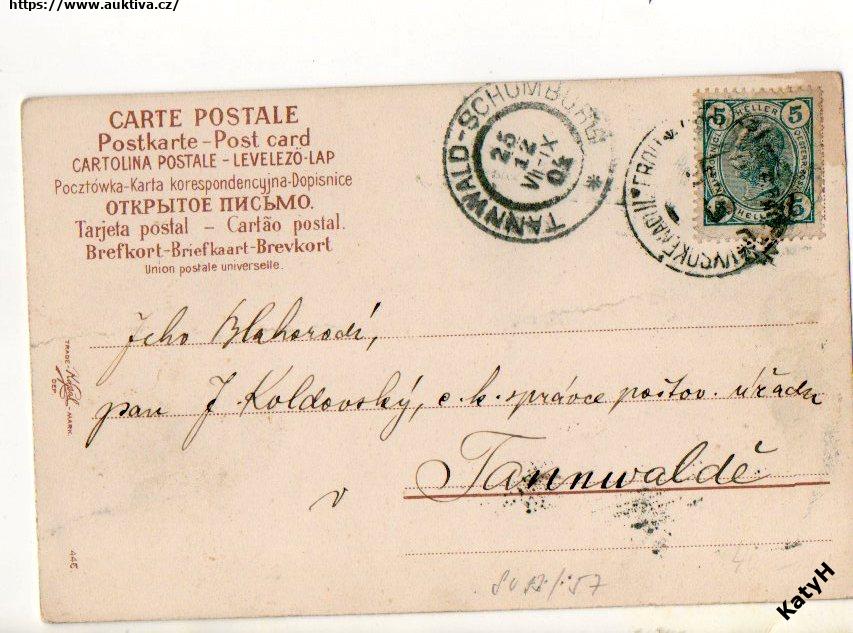 https://www.auktiva.cz/
CARTE POSTALE
Postkarte-Post card
CARTOLINA POSTALE - LEVELEZŐ-LAP
Pocztówka-Karta korespondencyjna-Dopisnice
ОТКРЫТОЕ ПИСЬМО.
Tarjeta postal - Cartão postal.
Brefkort-Briefkaart-Brevkort
Union postale universelle.
TANNWALD-SCHUMBURG
25
12
VII-IX
04
5 HELLER 5
5 HELLER 5
TRADE
DEP.
MARK.
Jeho Blahorodí,
pan J. Koldovský, c. k. správce poštov. úřadu
v Tannwaldě
445.
KatyH